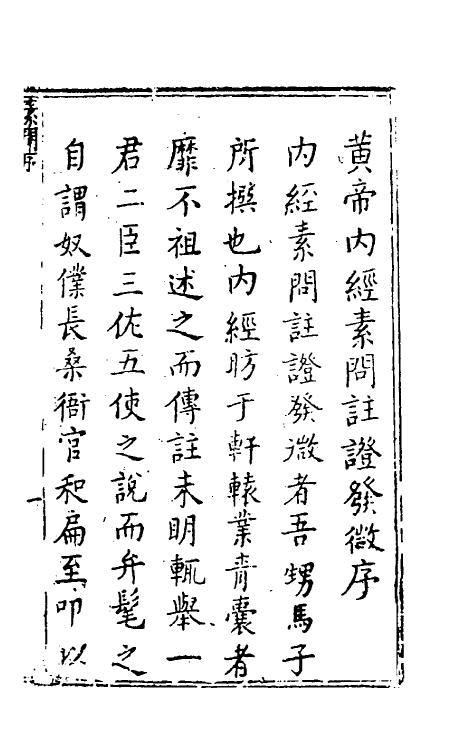 黄帝内經素問註證發微序
内經素問註證發微者吾甥馬子
所撰也内經昉于軒轅業青囊者
靡不祖述之而傳註未明輒舉一
君二臣三佐五使之說而弁髦之
自謂奴僕長桑衙官和扁至叩以
素問序
一